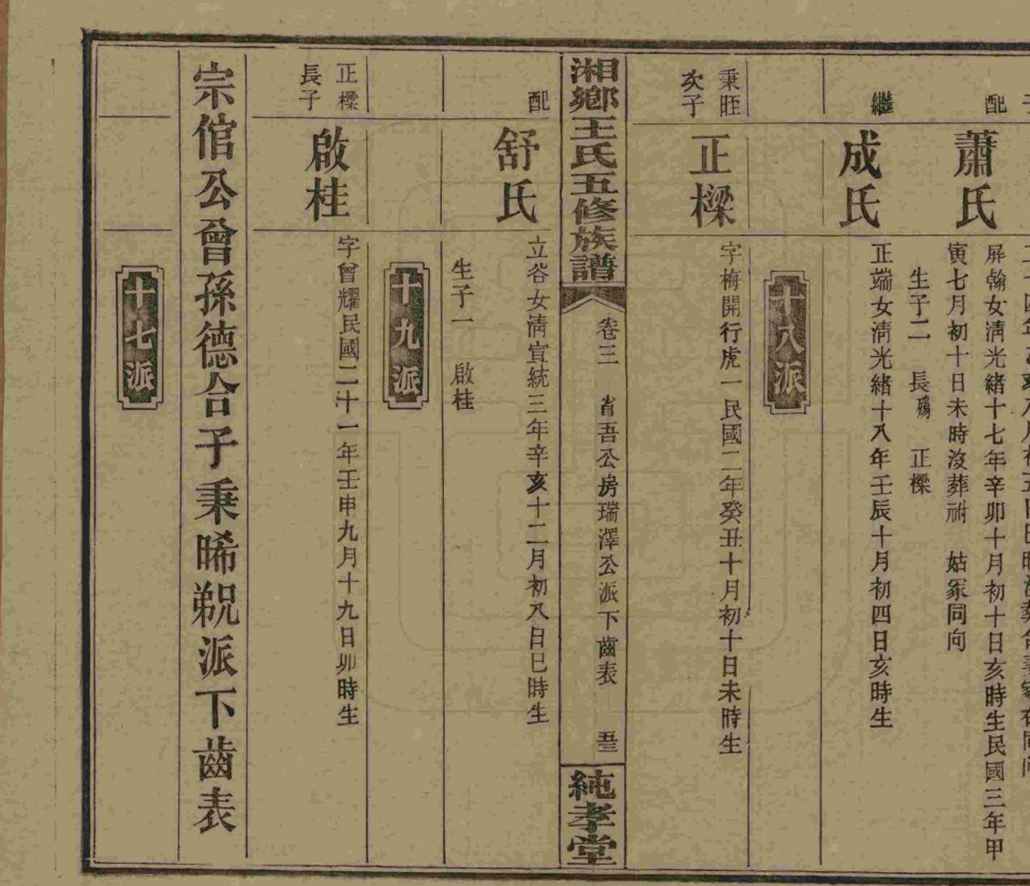 配
蕭氏
屏翰女清光緒十七年辛卯十月初十日亥時生民國三年甲
寅七月初十日未時沒葬祔 姑冢同向
生子二 長殤 正樑
繼
成氏
正端女清光緒十八年壬辰十月初四日亥時生
十八派
秉旺
次子
正樑
字梅開行虎一民國二年癸丑十月初十日未時生
湘鄉王氏五修族譜
卷三 省吾公房瑞澤公派下齒表
純孝堂
配
舒氏
立谷女清宣統三年辛亥十二月初八日巳時生
生子一 啟桂
十九派
正樑
長子
啟桂
字曾耀民國二十一年壬申九月十九日卯時生
宗倌公曾孫德合子秉晞覡派下齒表
十七派